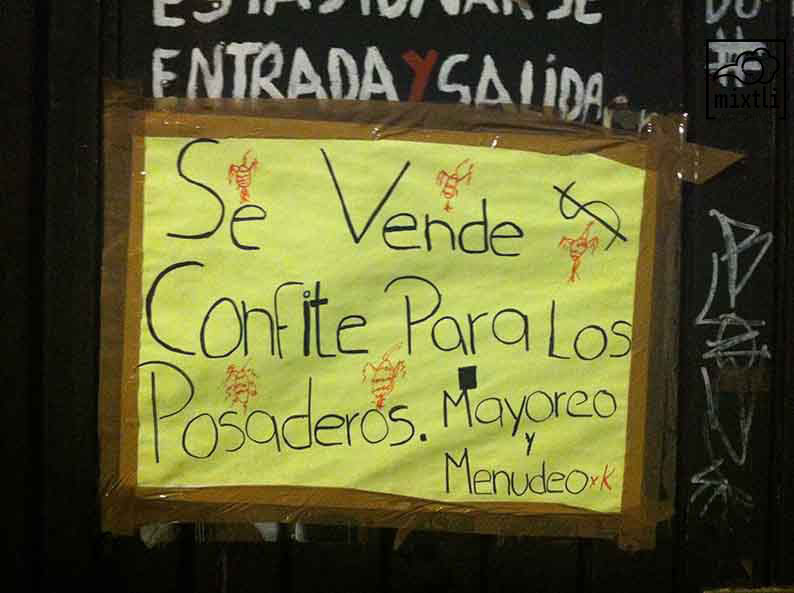 ESTACIONARSE
ENTRADA Y SALIDA
mixtli
Se Vende
Confite Para Los
Posaderos. Mayoreo
y
Menudeo x K